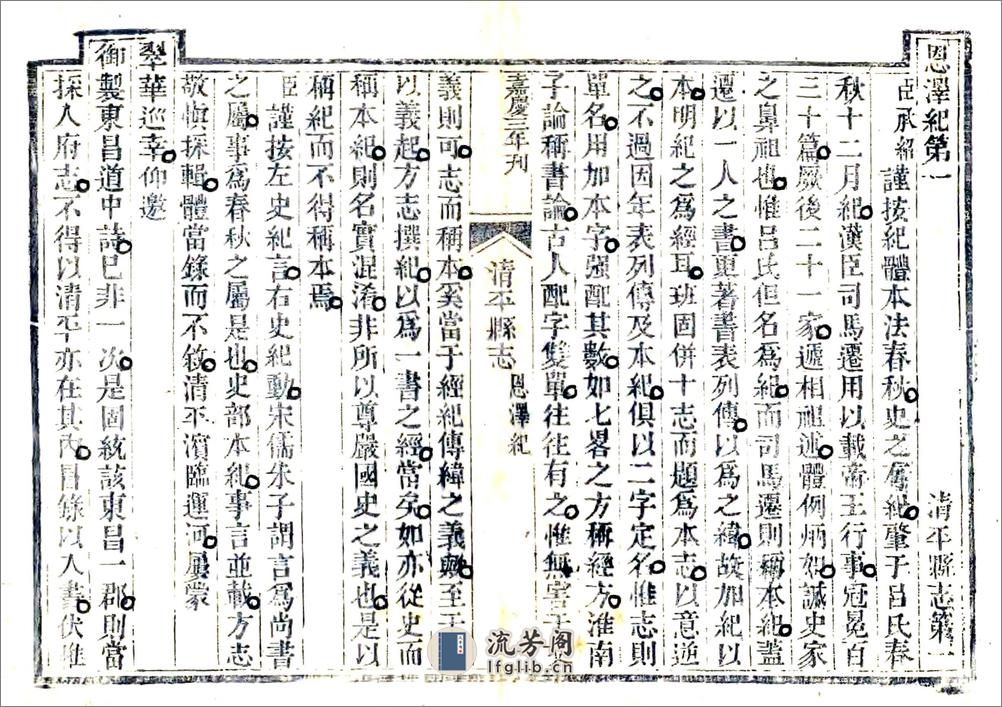 恩澤紀第一　清平縣志第一
臣承紹謹按紀體本法春秋史之屬紀肇于呂氏春
秋十二月紀漢臣司馬遷用以載帝王行事冠冕百
三十篇厥後二十一家遞相祖述體例炳如誠史家
之鼻祖也惟呂氏但名爲紀而司馬遷則稱本紀蓋
遷以一人之書更著書表列傳以爲之緯故加紀以
本明紀之爲經耳班固併十志而題爲本志以意逆
之不過因年表列傳及本紀俱以二字定名惟志則
單名用加本字强配其數如七畧之方稱經方淮南
子論稱書論古人配字雙單往往有之惟無害于
嘉慶三年刊　清平縣志　恩澤紀
義則可志而稱本奚當于經紀傳緯之義歟至于
以義起方志撰紀以爲一書之經當矣如亦從史而
稱本紀則名實混淆非所以尊嚴國史之義也是以
稱紀而不得稱本焉
臣謹按左史紀言右史紀動宋儒朱子謂言爲尚書
之屬事爲春秋之屬是也史部本紀事言並載方志
敬愼採輯體當錄而不敘清平濱臨運河屢蒙
翠華巡幸仰邀
御製東昌道中詩已非一次是固統該東昌一郡則當
採入府志不得以清平亦在其內目錄以入書伏惟
流芳阁
lfglib.cn